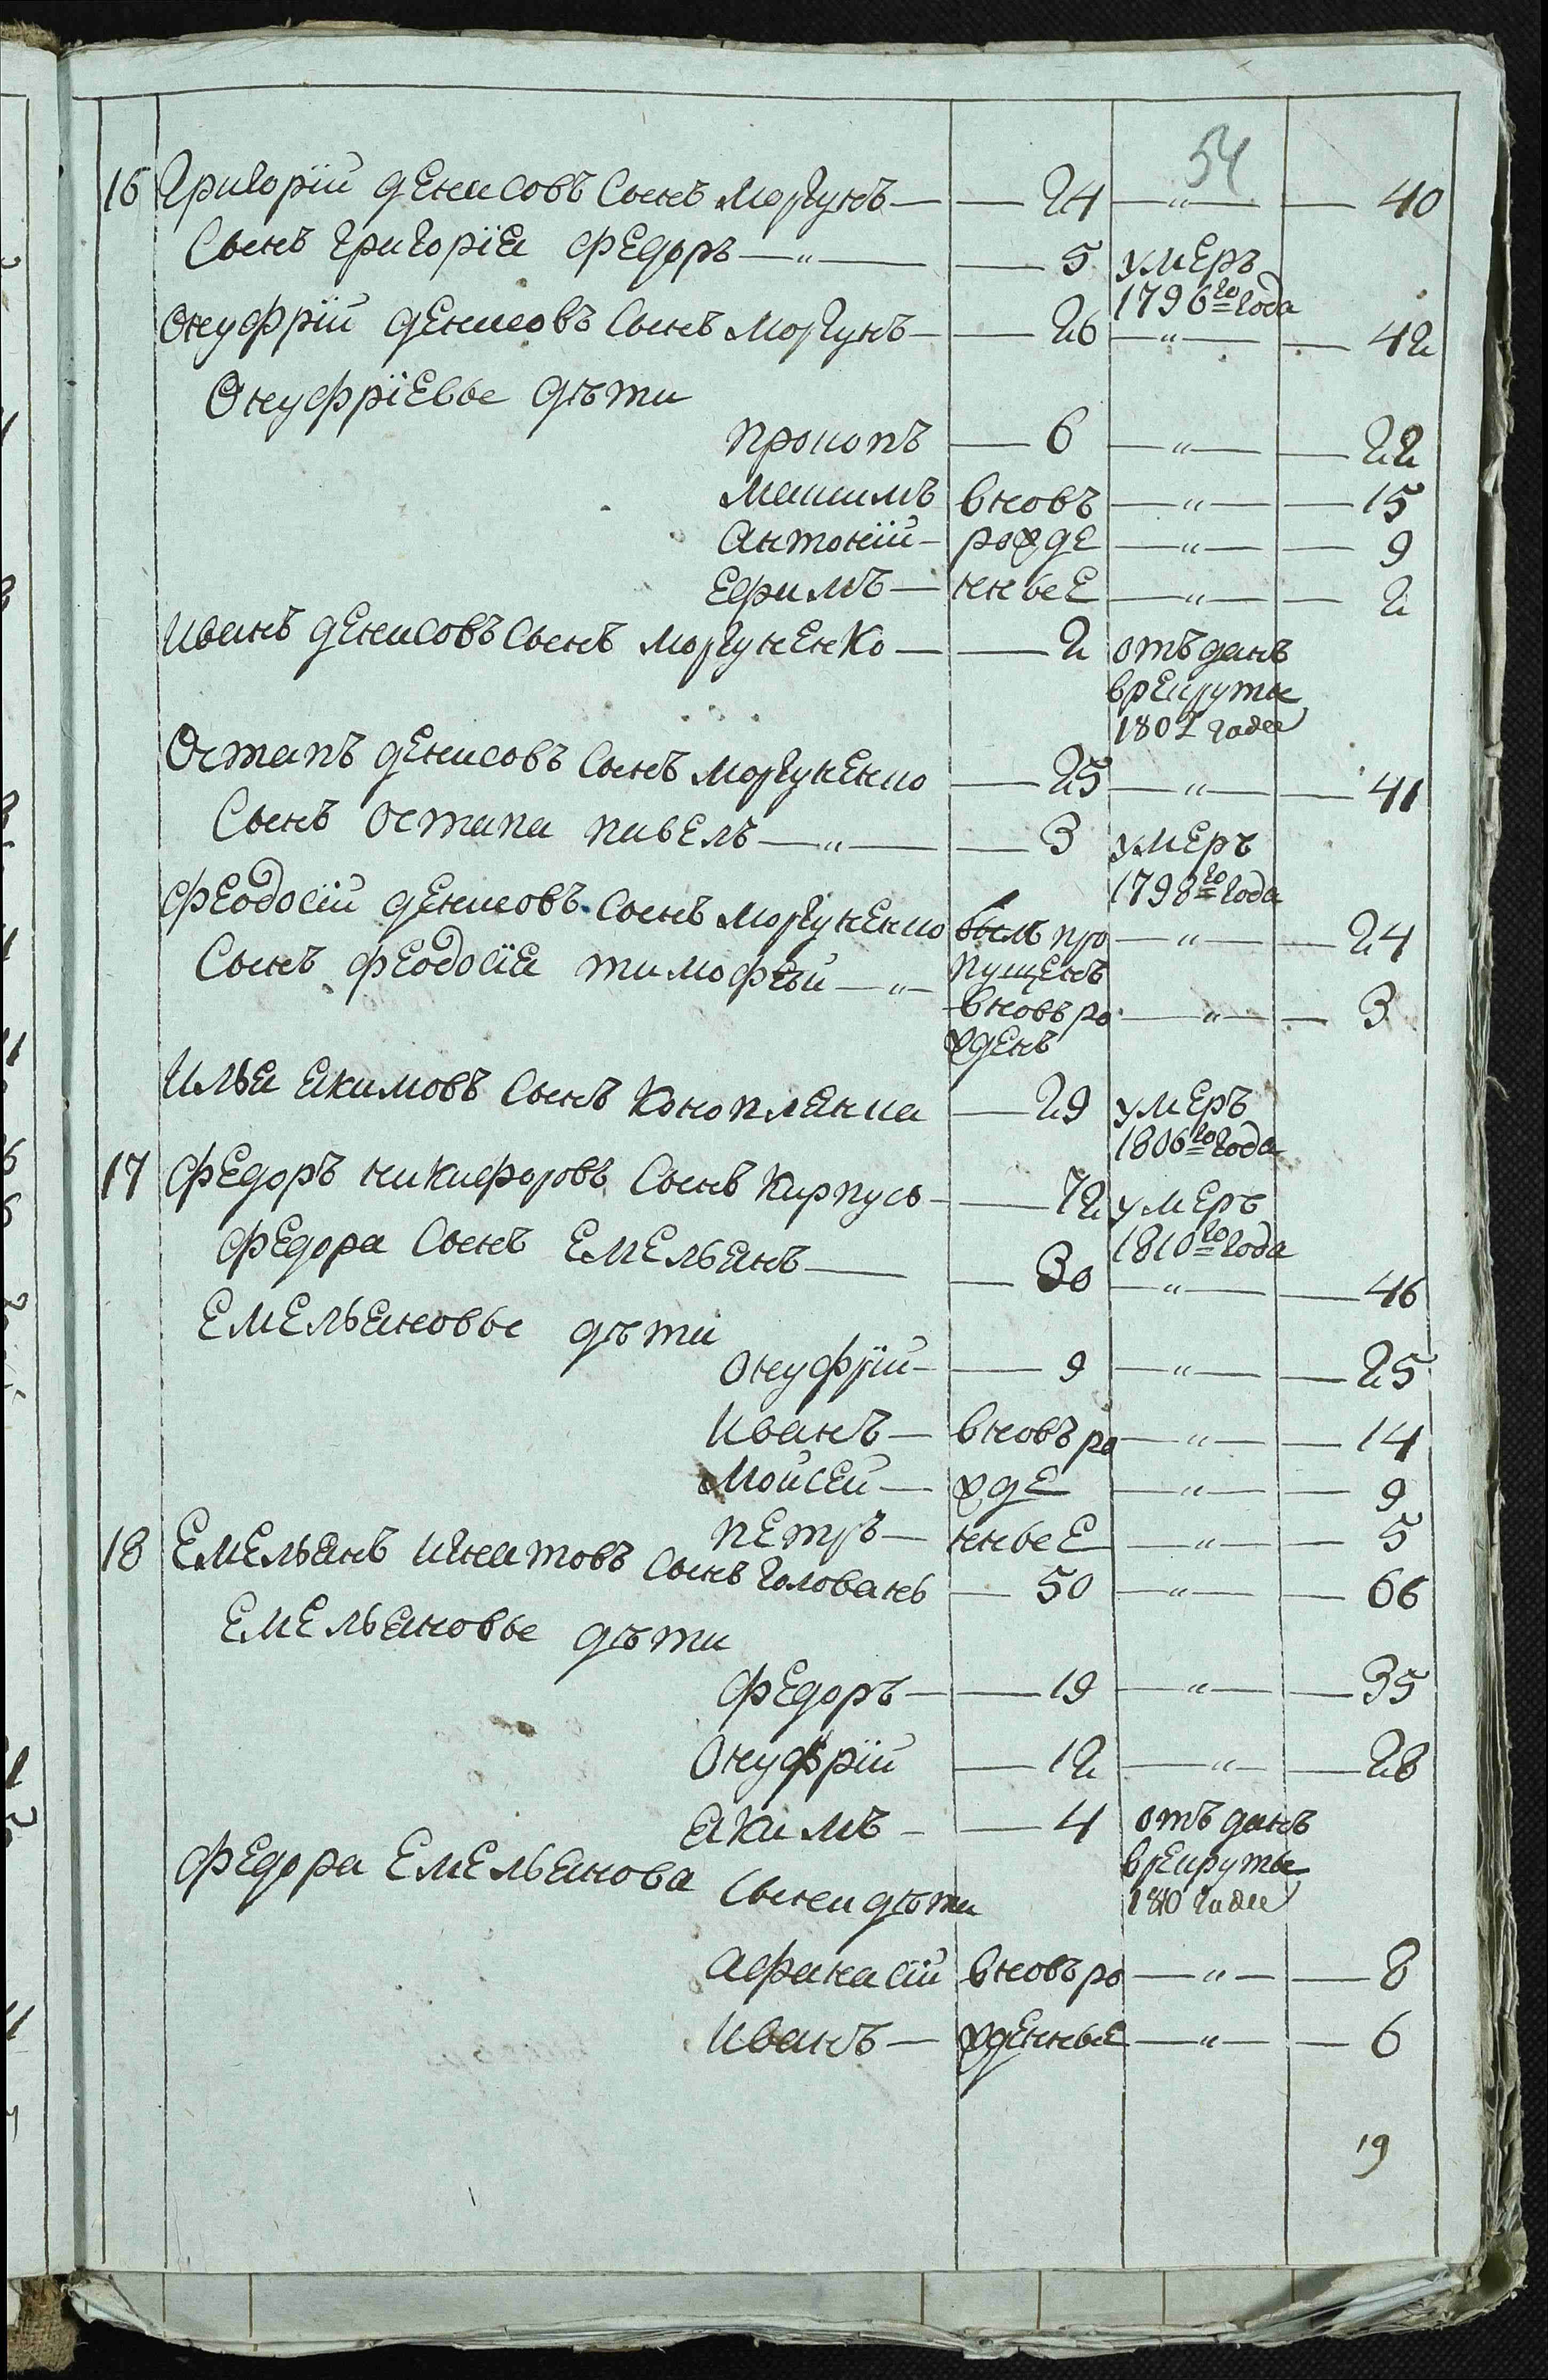 54
16 Григорїй денисовъ Сынъ моргунъ — — 24 — „ — — 40
Сынъ григорїя федоръ — „ — — 5 умеръ
1796го года
Онуфрїй денисовъ Сынъ моргунъ — — 26 — „ — — 42
Онуфрїевы дѣти
прокопъ — 6 — „ — — 22
максимъ вновь — „ — — 15
антонїй — рожде — „ — — 9
ефимъ — нные — „ — — 2
иванъ денисовъ Сынъ моргуненко — — 2 отъданъ
врекруты
1802 года
Остапъ денисовъ Сынъ моргуненко — 25 — „ — — 41
Сынъ остапа павелъ — „ — — 3 умеръ
1798го года
феодосїй денисовъ Сынъ моргуненко былъ про — „ — — 24
пущенъ
Сынъ феодосїя тимофѣй — „ — вновь ро — „ — — 3
жденъ
илья якимовъ Сынъ коноплянка — 29 умеръ
1806го года
17 федоръ никифоровъ Сынъ карпусь — — 72 умеръ
1810го года
федора Сынъ емельянъ — — 30 — „ — — 46
емельяновы дѣти
онуфрїй — — 9 — „ — — 25
иванъ — вновь ро — „ — — 14
мойсей — жде — „ — — 9
петръ — нные — „ — — 5
18 емельянъ игнатовъ Сынъ головань — 50 — „ — — 66
емельяновы дѣти
федоръ — — 19 — „ — — 35
Онуфрїй — 12 — „ — — 28
якимъ — — 4 отъданъ
врекруты
1810 года
федора емельянова Сынеи дѣти
афанасїй вновь ро — „ — — 8
иванъ — жденные — „ — — 6
19